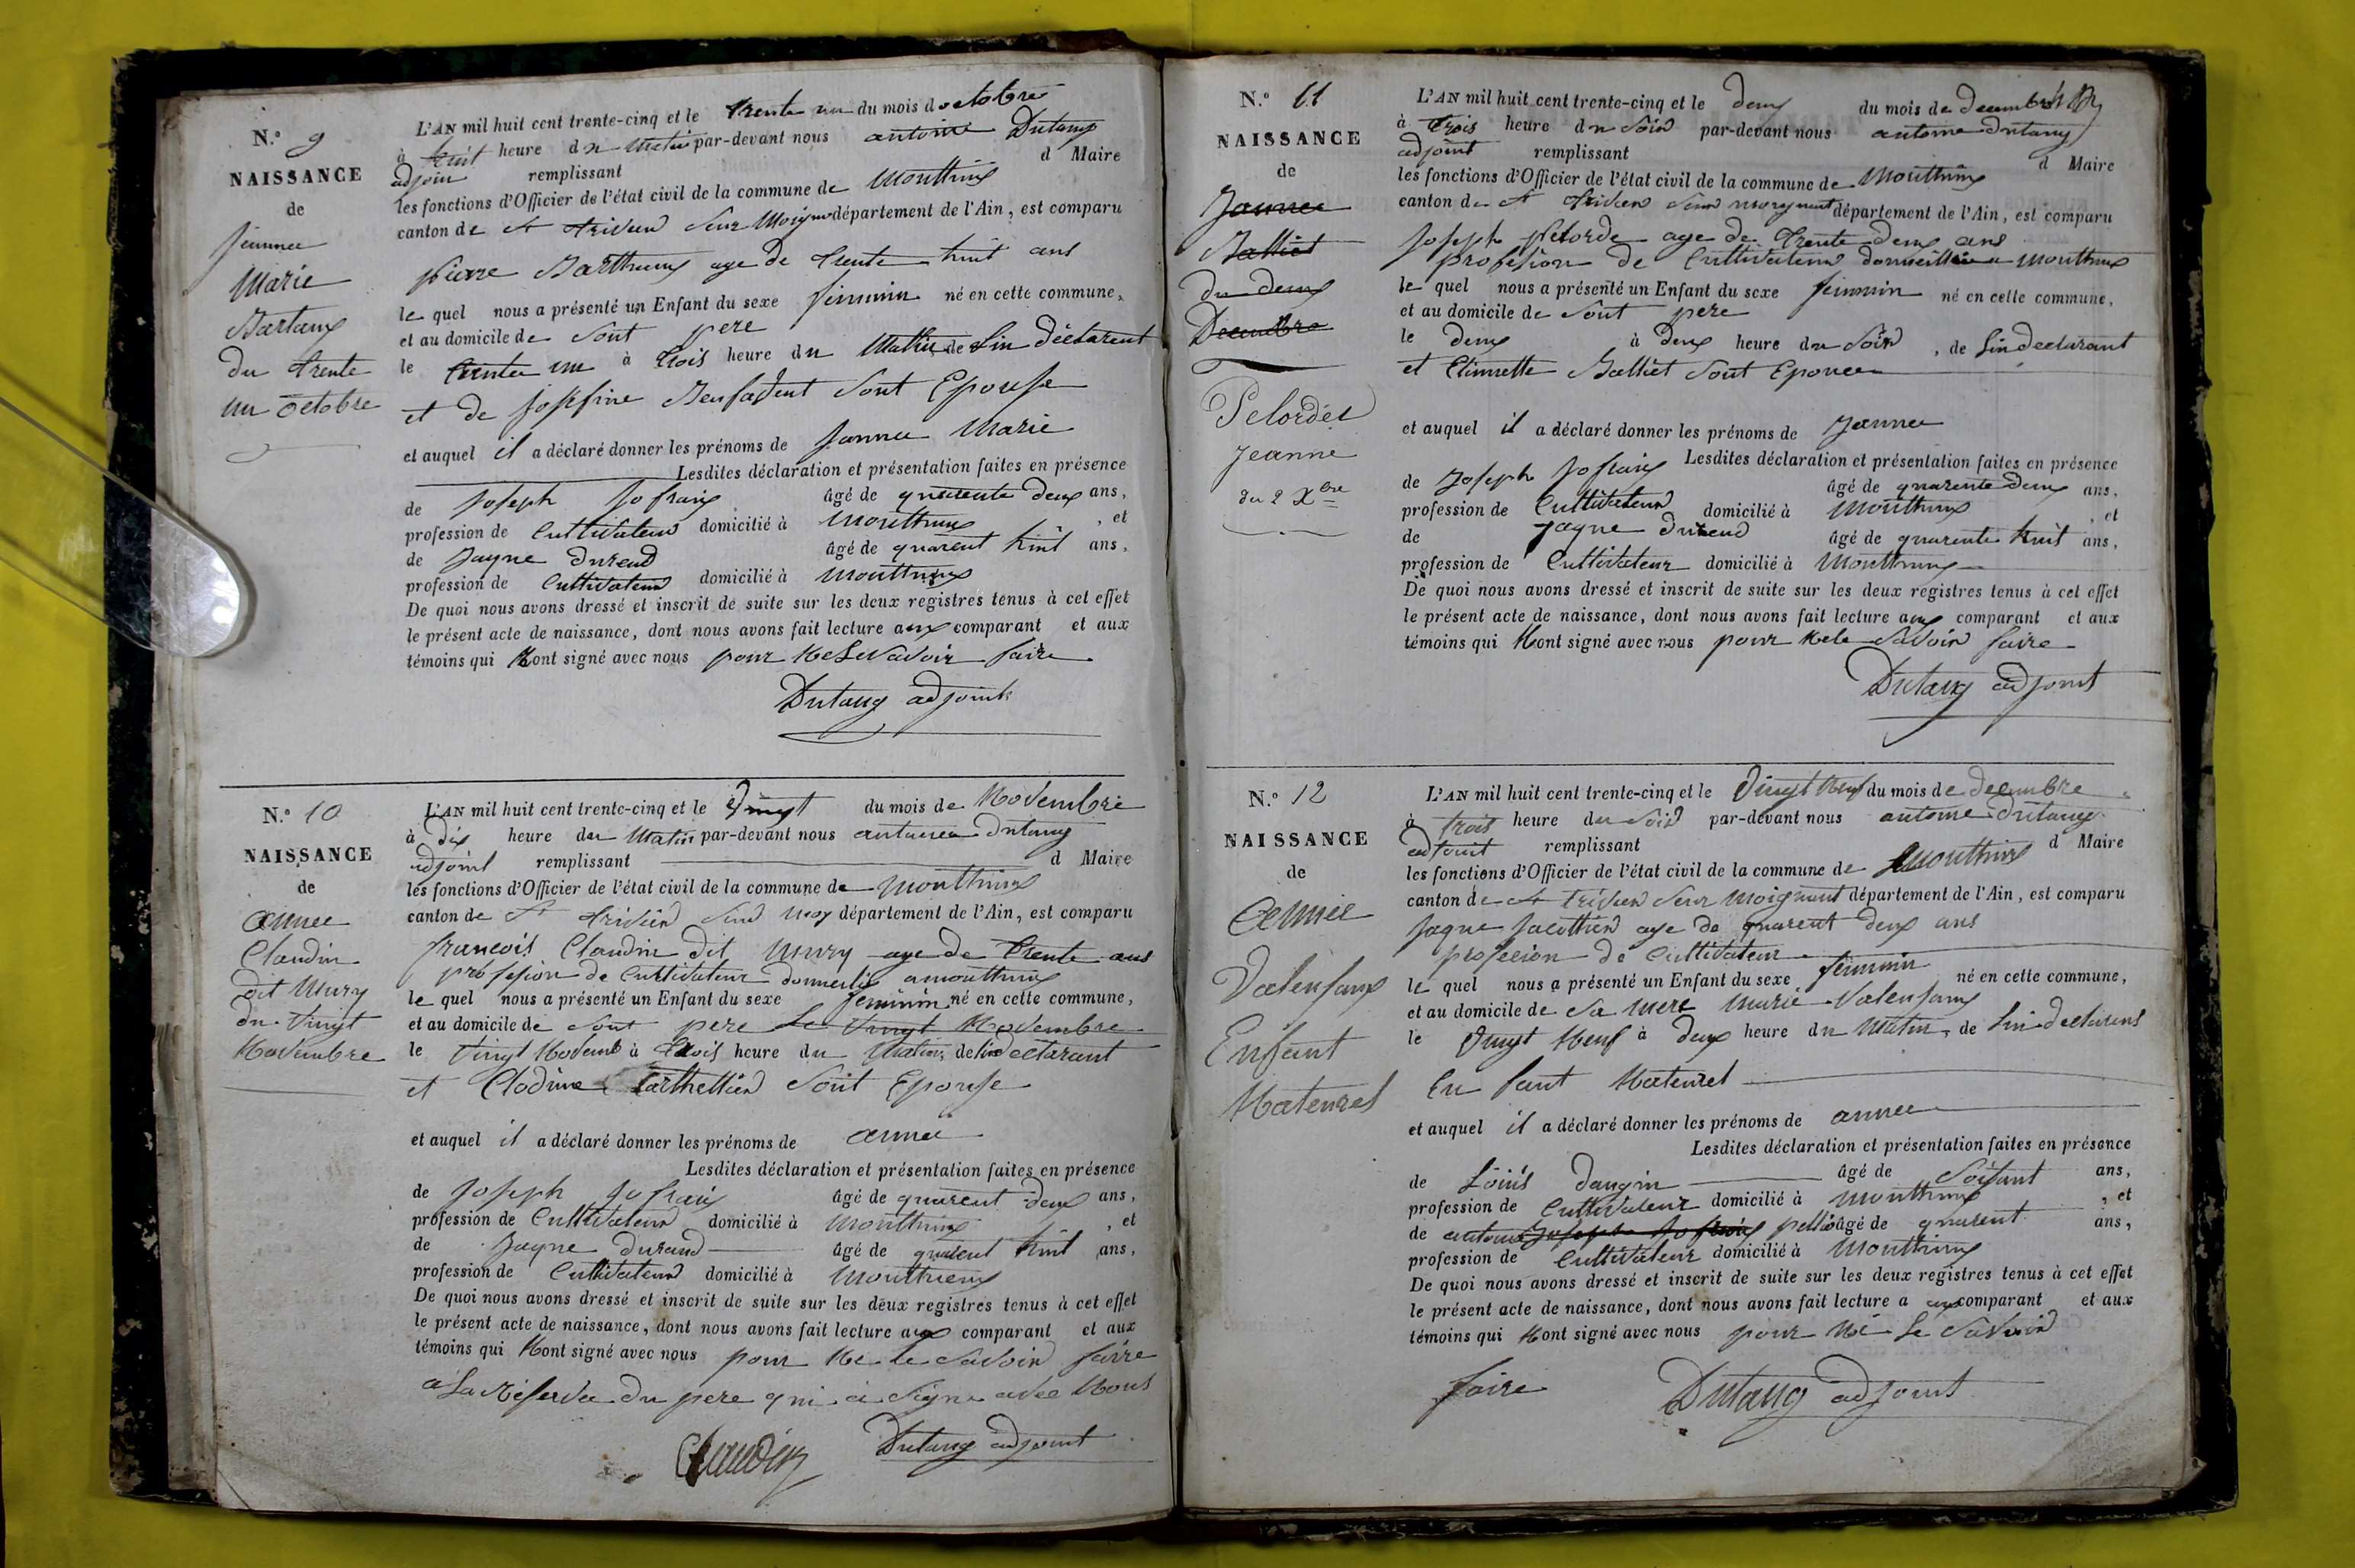 N.º 9
NAISSANCE
de
Jeannee
Marie
Bartauy
du trente
un octobre
L'AN mil huit cent trente-cinq et le trente un du mois d octobre
à huit heure du matin par-devant nous antoine Dutang
adjoin remplissant d Maire
les fonctions d'Officier de l'état civil de la commune de
canton de St trivieu Seur département de l'Ain, est comparu
pierre age de trente huit ans
le quel nous a présenté un Enfant du sexe feminin né en cette commune,
et au domicile de sont pere
le trente un à trois heure du matin de Lui déclarent
et de Joséfine sont Epouse
et auquel il a déclaré donner les prénoms de Jannee Marie
Lesdites déclaration et présentation faites en présence
de Joseph Jofraiy âgé de quarente deux ans,
profession de Cultivateur domicilié à , et
de Jaque Durend âgé de quarent huit ans,
profession de Cultivateur domicilié à
De quoi nous avons dressé et inscrit de suite sur les deux registres tenus à cet effet
le présent acte de naissance, dont nous avons fait lecture aux comparant et aux
témoins qui Nont signé avec nous pour ne Le savoir faire
Dutang adjoint
N.º 10
NAISSANCE
de
annee
Claudin
dit Mury
du vingt
Novembre
L'AN mil huit cent trente-cinq et le vingt du mois de Novembre
à dix heure du matin par-devant nous Dutang
adjoint remplissant d Maire
les fonctions d'Officier de l'état civil de la commune de
canton de St trivieu Seur Moy département de l'Ain, est comparu
francois Claudin dit Mury age de trente ans
profesion de Cultivateur
le quel nous a présenté un Enfant du sexe feminin né en cette commune,
et au domicile de sont pere Le vingt Novembre
le vingt Novemb à trois heure du matin de Lui declarant
et Clodine sont Epouse
et auquel il a déclaré donner les prénoms de annee
Lesdites déclaration et présentation faites en présence
de Joseph Jofraiy âgé de quarent deux ans,
profession de Cultivateur domicilié à , et
de Jaque Durand âgé de quarent huit ans,
profession de Cultivateur domicilié à
De quoi nous avons dressé et inscrit de suite sur les deux registres tenus à cet effet
le présent acte de naissance, dont nous avons fait lecture aux comparant et aux
témoins qui Nont signé avec nous pour ne le savoir faire
a La Réserve du pere qui a Signe avec Nous
Claudin Dutang adjoint
N.º 11
NAISSANCE
de
Jannee
Balliet
du deux
Decembre
Pelordet
Jeanne
du 2 Xbre
L'AN mil huit cent trente-cinq et le deux du mois de decembre
à trois heure du soir par-devant nous antoine Dutang
adjoint remplissant d Maire
les fonctions d'Officier de l'état civil de la commune de
canton de St trivieu Seur département de l'Ain, est comparu
Joseph Pelorde age de trente deux ans
profesion de Cultivateur
le quel nous a présenté un Enfant du sexe feminin né en cette commune,
et au domicile de sont pere
le deux à deux heure du soir , de Lui declarant
et Balliet sont Epouce
et auquel il a déclaré donner les prénoms de Jannee
Lesdites déclaration et présentation faites en présence
de Joseph Jofraiy âgé de quarente deux ans,
profession de Cultivateur domicilié à , et
de Jaque Durend âgé de quarente huit ans,
profession de Cultivateur domicilié à
De quoi nous avons dressé et inscrit de suite sur les deux registres tenus à cet effet
le présent acte de naissance, dont nous avons fait lecture aux comparant et aux
témoins qui Nont signé avec nous pour ne le savoir faire
Dutang adjoint
N.º 12
NAISSANCE
de
Valenfang
Enfant
Naturel
L'AN mil huit cent trente-cinq et le vingt neuf du mois de decembre
à trois heure du soir par-devant nous antoine Dutang
adjoint remplissant d Maire
les fonctions d'Officier de l'état civil de la commune de
canton de St trivieu Seur Moignant département de l'Ain, est comparu
Jaque age de quarent deux ans
de Cultivateur
le quel nous a présenté un Enfant du sexe feminin né en cette commune,
et au domicile de sa mere Marie Valenfang
le vingt neuf à deux heure du matin, de Lui declarens
En fant
et auquel il a déclaré donner les prénoms de annee
Lesdites déclaration et présentation faites en présence
de Loüis Dangin âgé de soisant ans,
profession de Cultivateur domicilié à , et
de antoine Joseph Jofraiy âgé de quarent ans,
profession de Cultivateur domicilié à
De quoi nous avons dressé et inscrit de suite sur les deux registres tenus à cet effet
le présent acte de naissance, dont nous avons fait lecture a comparant et aux
témoins qui Nont signé avec nous pour ne Le savoir
faire Dutang adjoint